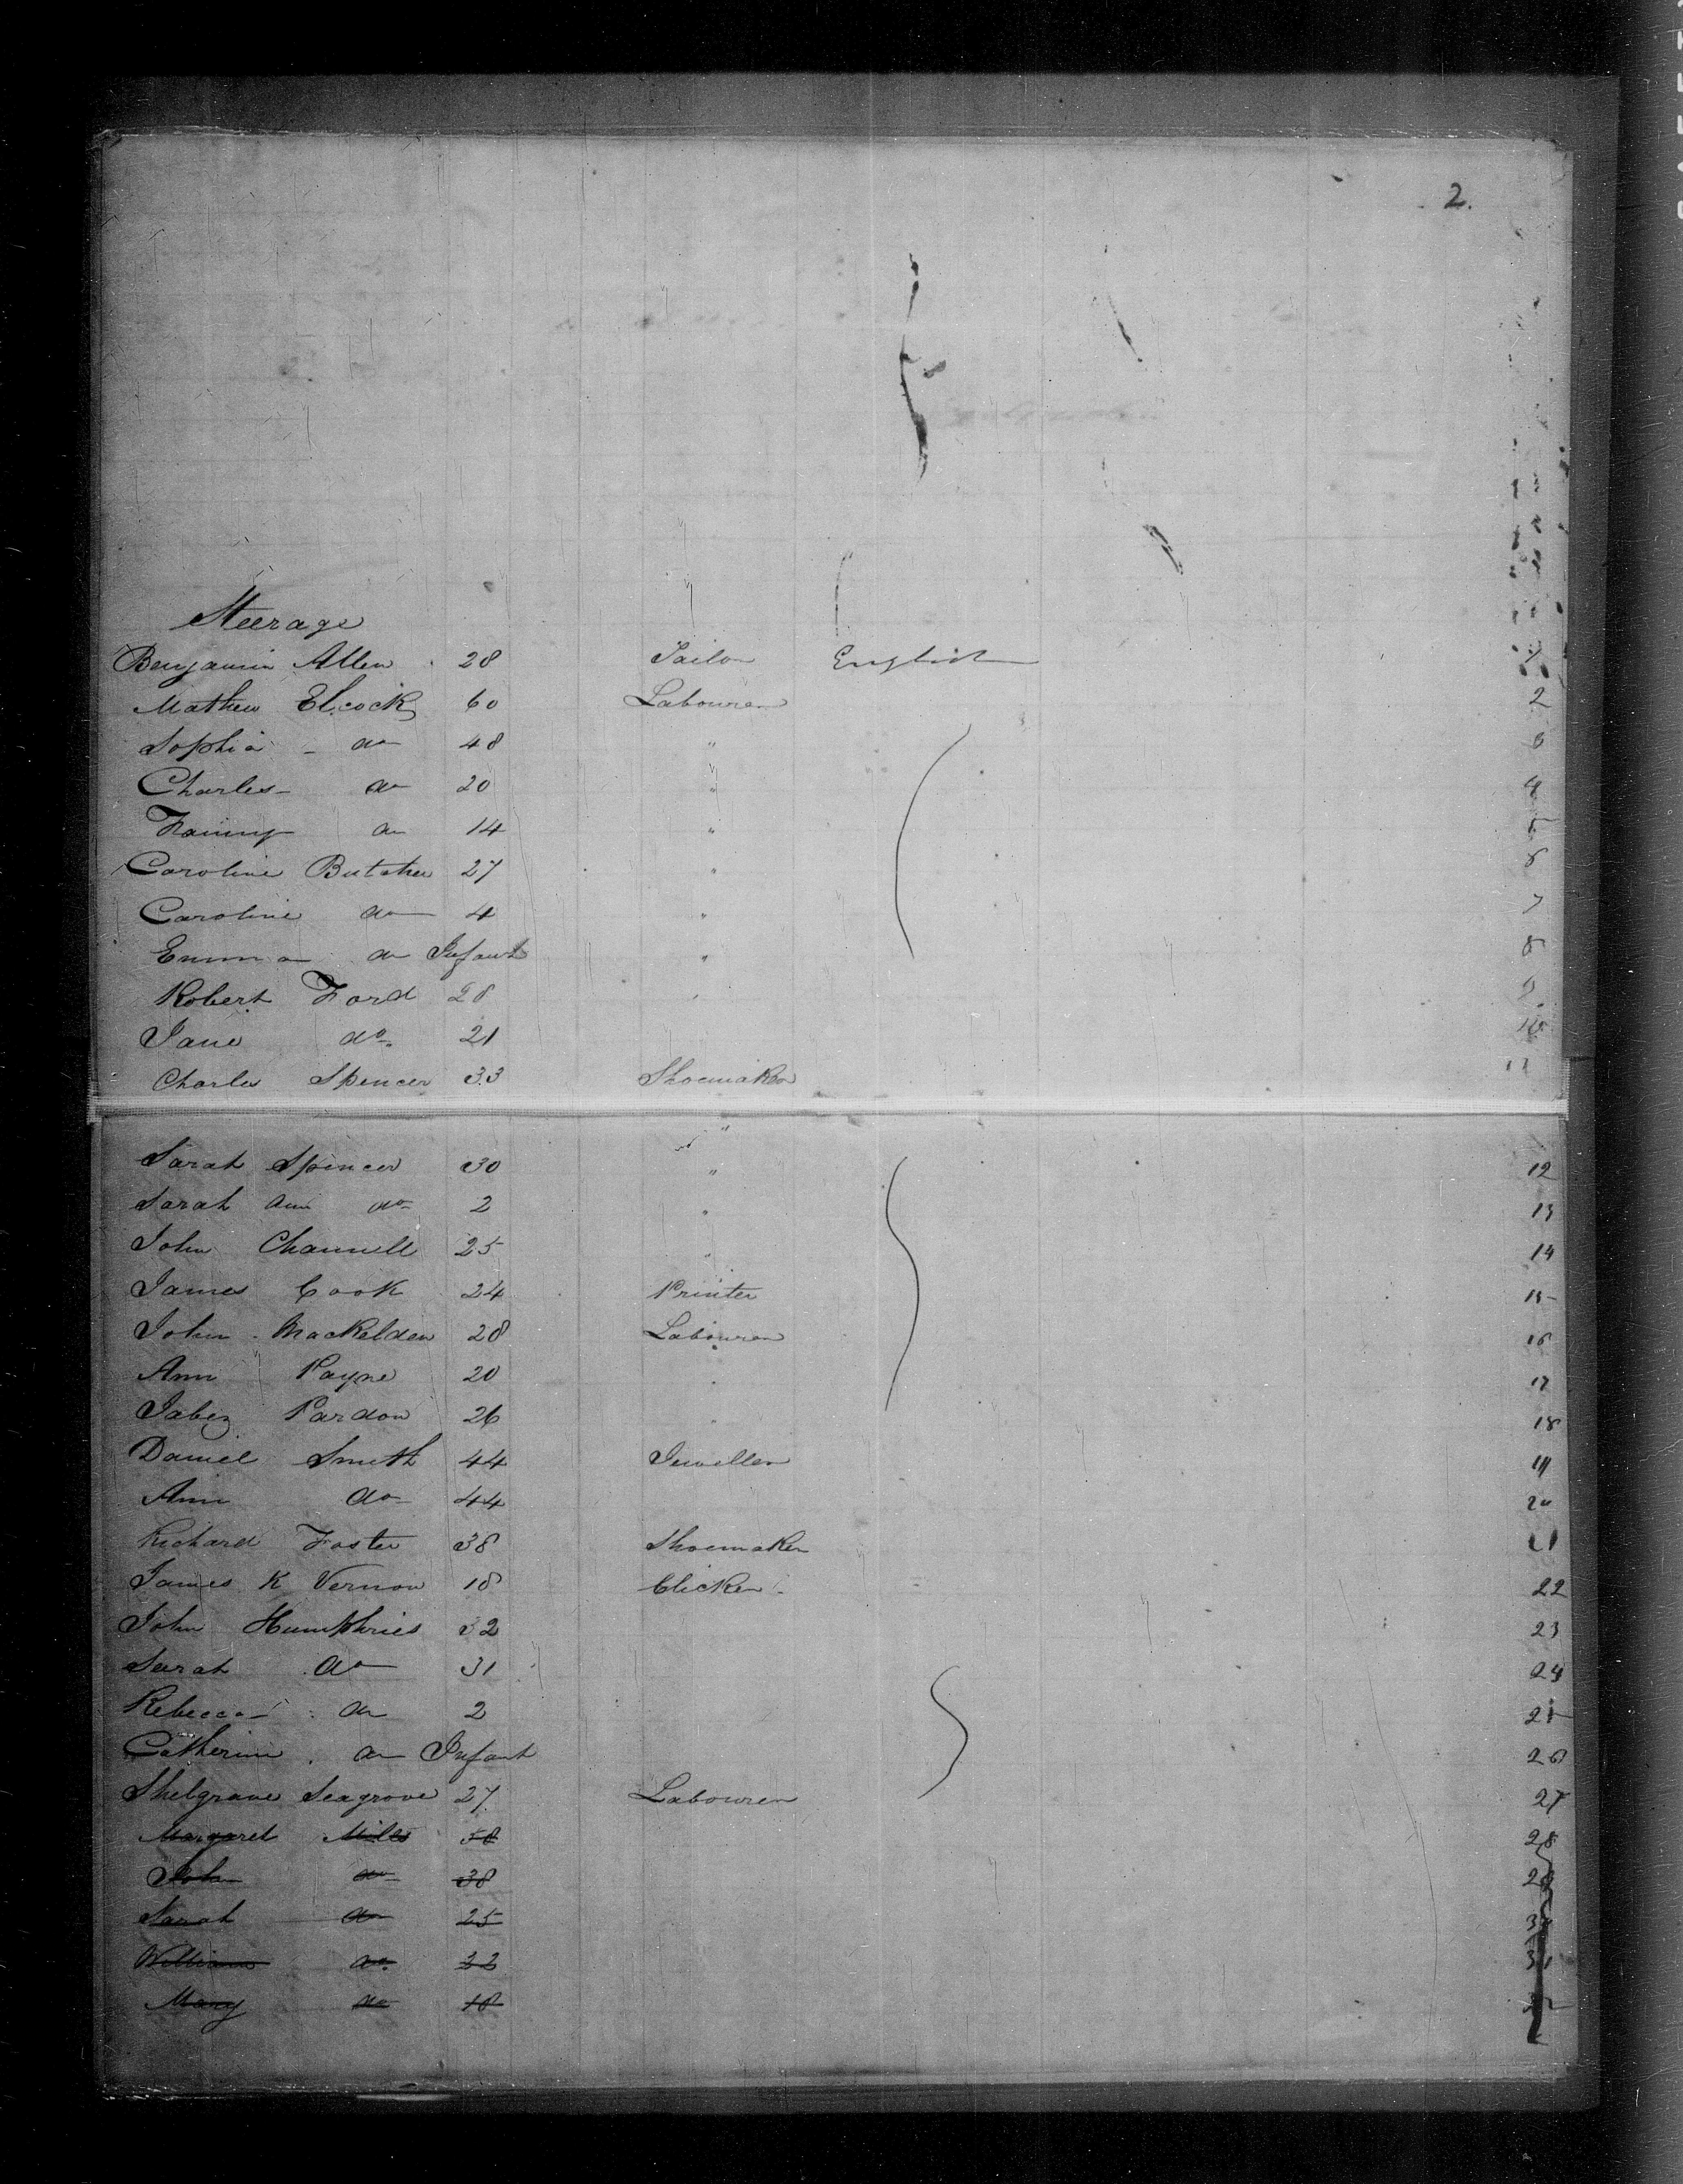 2.
Steerage
Benjamin Allen 28 Tailor English 1
Mathew Elcock 60 Labourer 2
Sophia - do 48 " 3
Charles - do 20 " 4
Fanny do 14 " 5
Caroline Butcher 27 " 6
Caroline do 4 " 7
Emma do Infant " 8
Robert Ford 28 " 9
Jane do. 21 10
Charles Spencer 33 Shoemaker 11
Sarah Spencer 30 " 12
Sarah Ann do 2 " 13
John Channell 25 " 14
James Cook 24 Printer 15
John Mackelden 28 Labourer 16
Ann Payne 20 " 17
Jabez Pardon 26 " 18
Daniel Smith 44 Jeweller 19
Ann do 44 20
Richard Foster 38 Shoemaker 21
James K Vernon 18 Clicker 22
John Humphries 32 23
Sarah do 31 24
Rebecca do 2 25
Catherine do Infant 26
Shelgrave Seagrove 27 Labourer 27
Margaret Miles 58 28
John do 38 29
Sarah do 25 30
William do. 22 31
Mary do 18 32